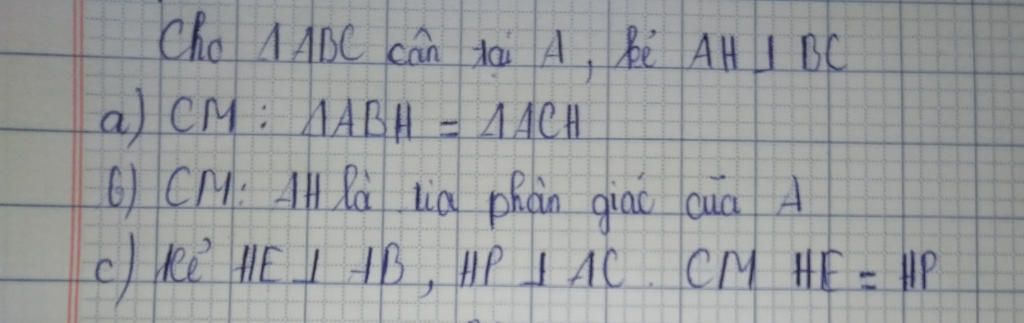 Cho ΔABC cân tại A, kẻ AH ⊥ BC
a) CM: ΔABH = ΔACH
b) CM: AH là tia phân giác của A
c) Kẻ HE ⊥ AB, HP ⊥ AC. CM HE = HP